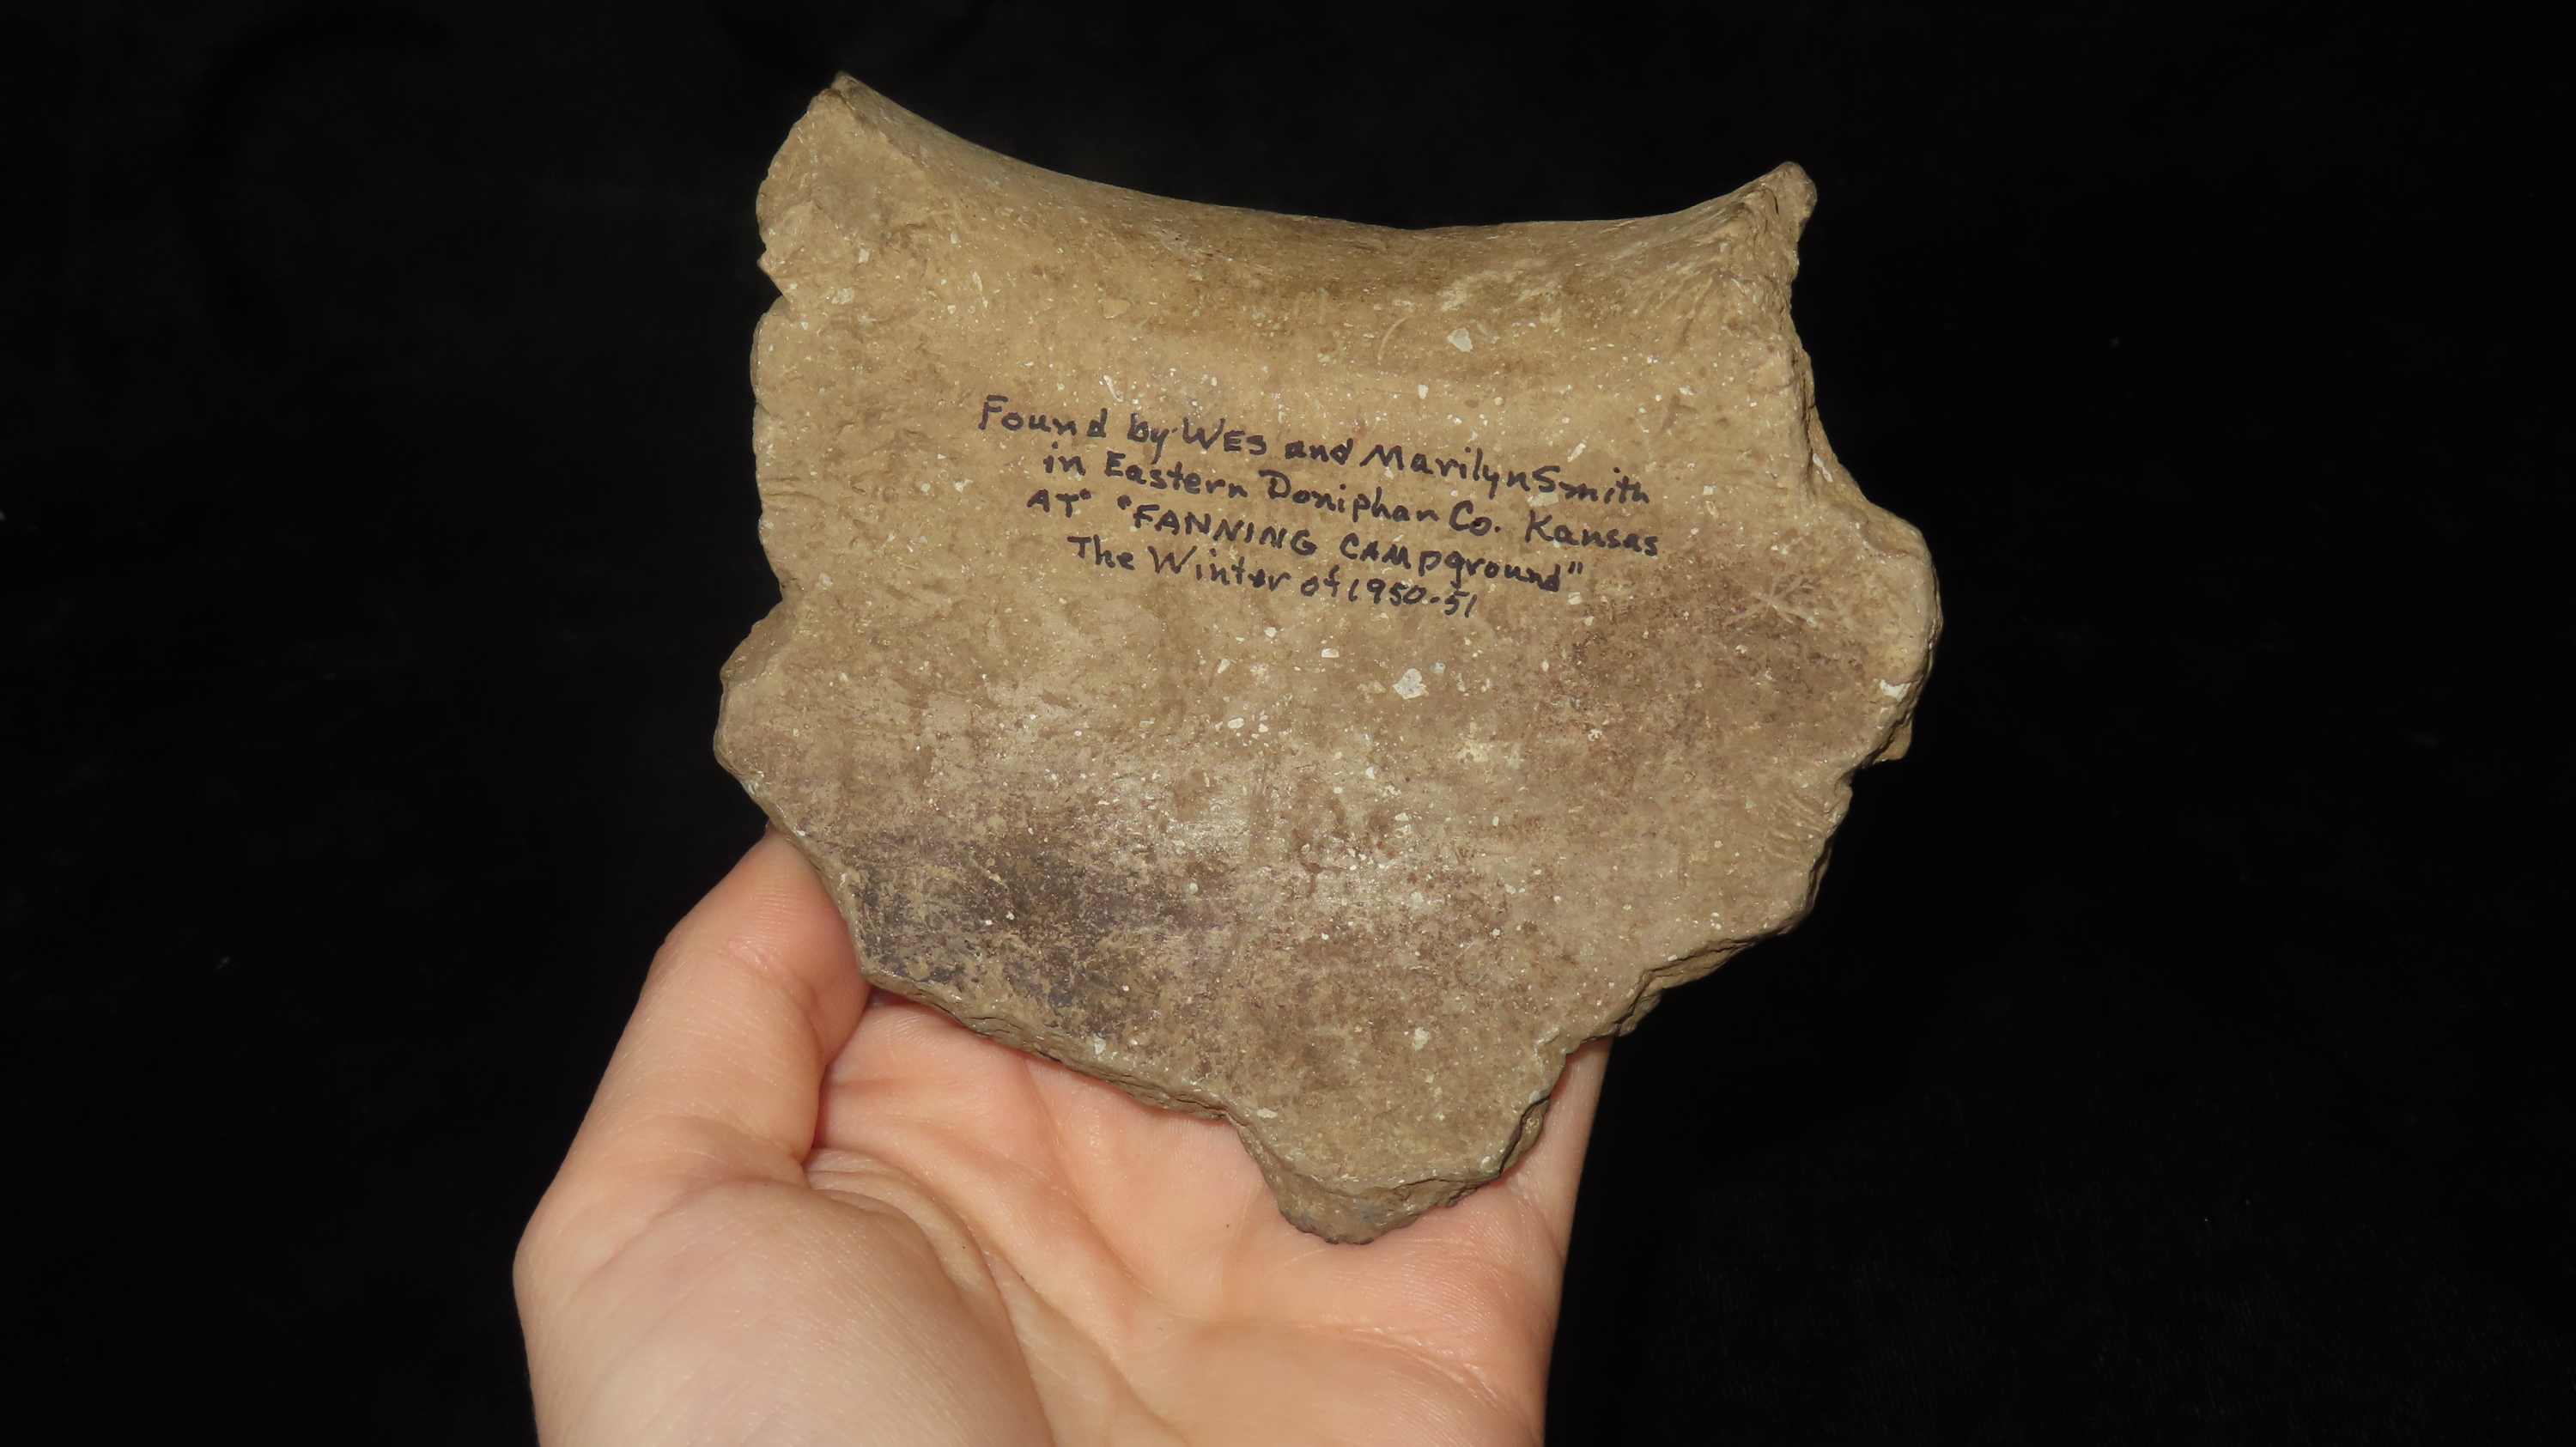 Found by WES and Marilyn Smith
in Eastern Doniphan Co. Kansas
AT "FANNING CAMPground"
The Winter of 1950-51